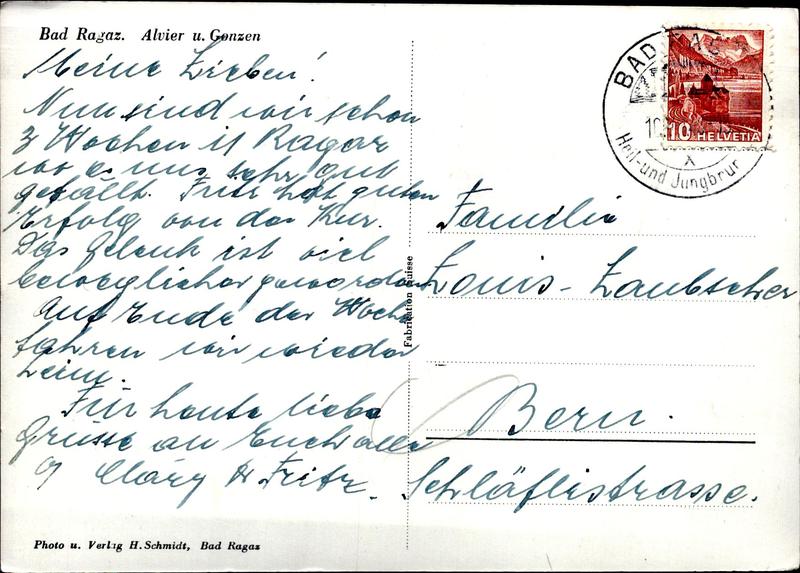 Bad Ragaz. Alvier u. Gonzen
Meine Lieben!
Nun sind wir schon
3 Wochen i/ Ragaz
wo es uns sehr gut
gefällt. Fritz hat guten
Erfolg von der Kur.
Das Gelenk ist viel
beweglicher geworden.
Auf Ende der Woche
fahren wir wieder
heim.
Für heute liebe
Grüsse an Euch alle
Cläry & Fritz.
Photo u. Verlag H. Schmidt, Bad Ragaz
Fabrication Suisse
BAD RAGAZ
10
10 HELVETIA
Heil- und Jungbrun
Familie
Louis-Laubscher
Bern.
Schläflistrasse.